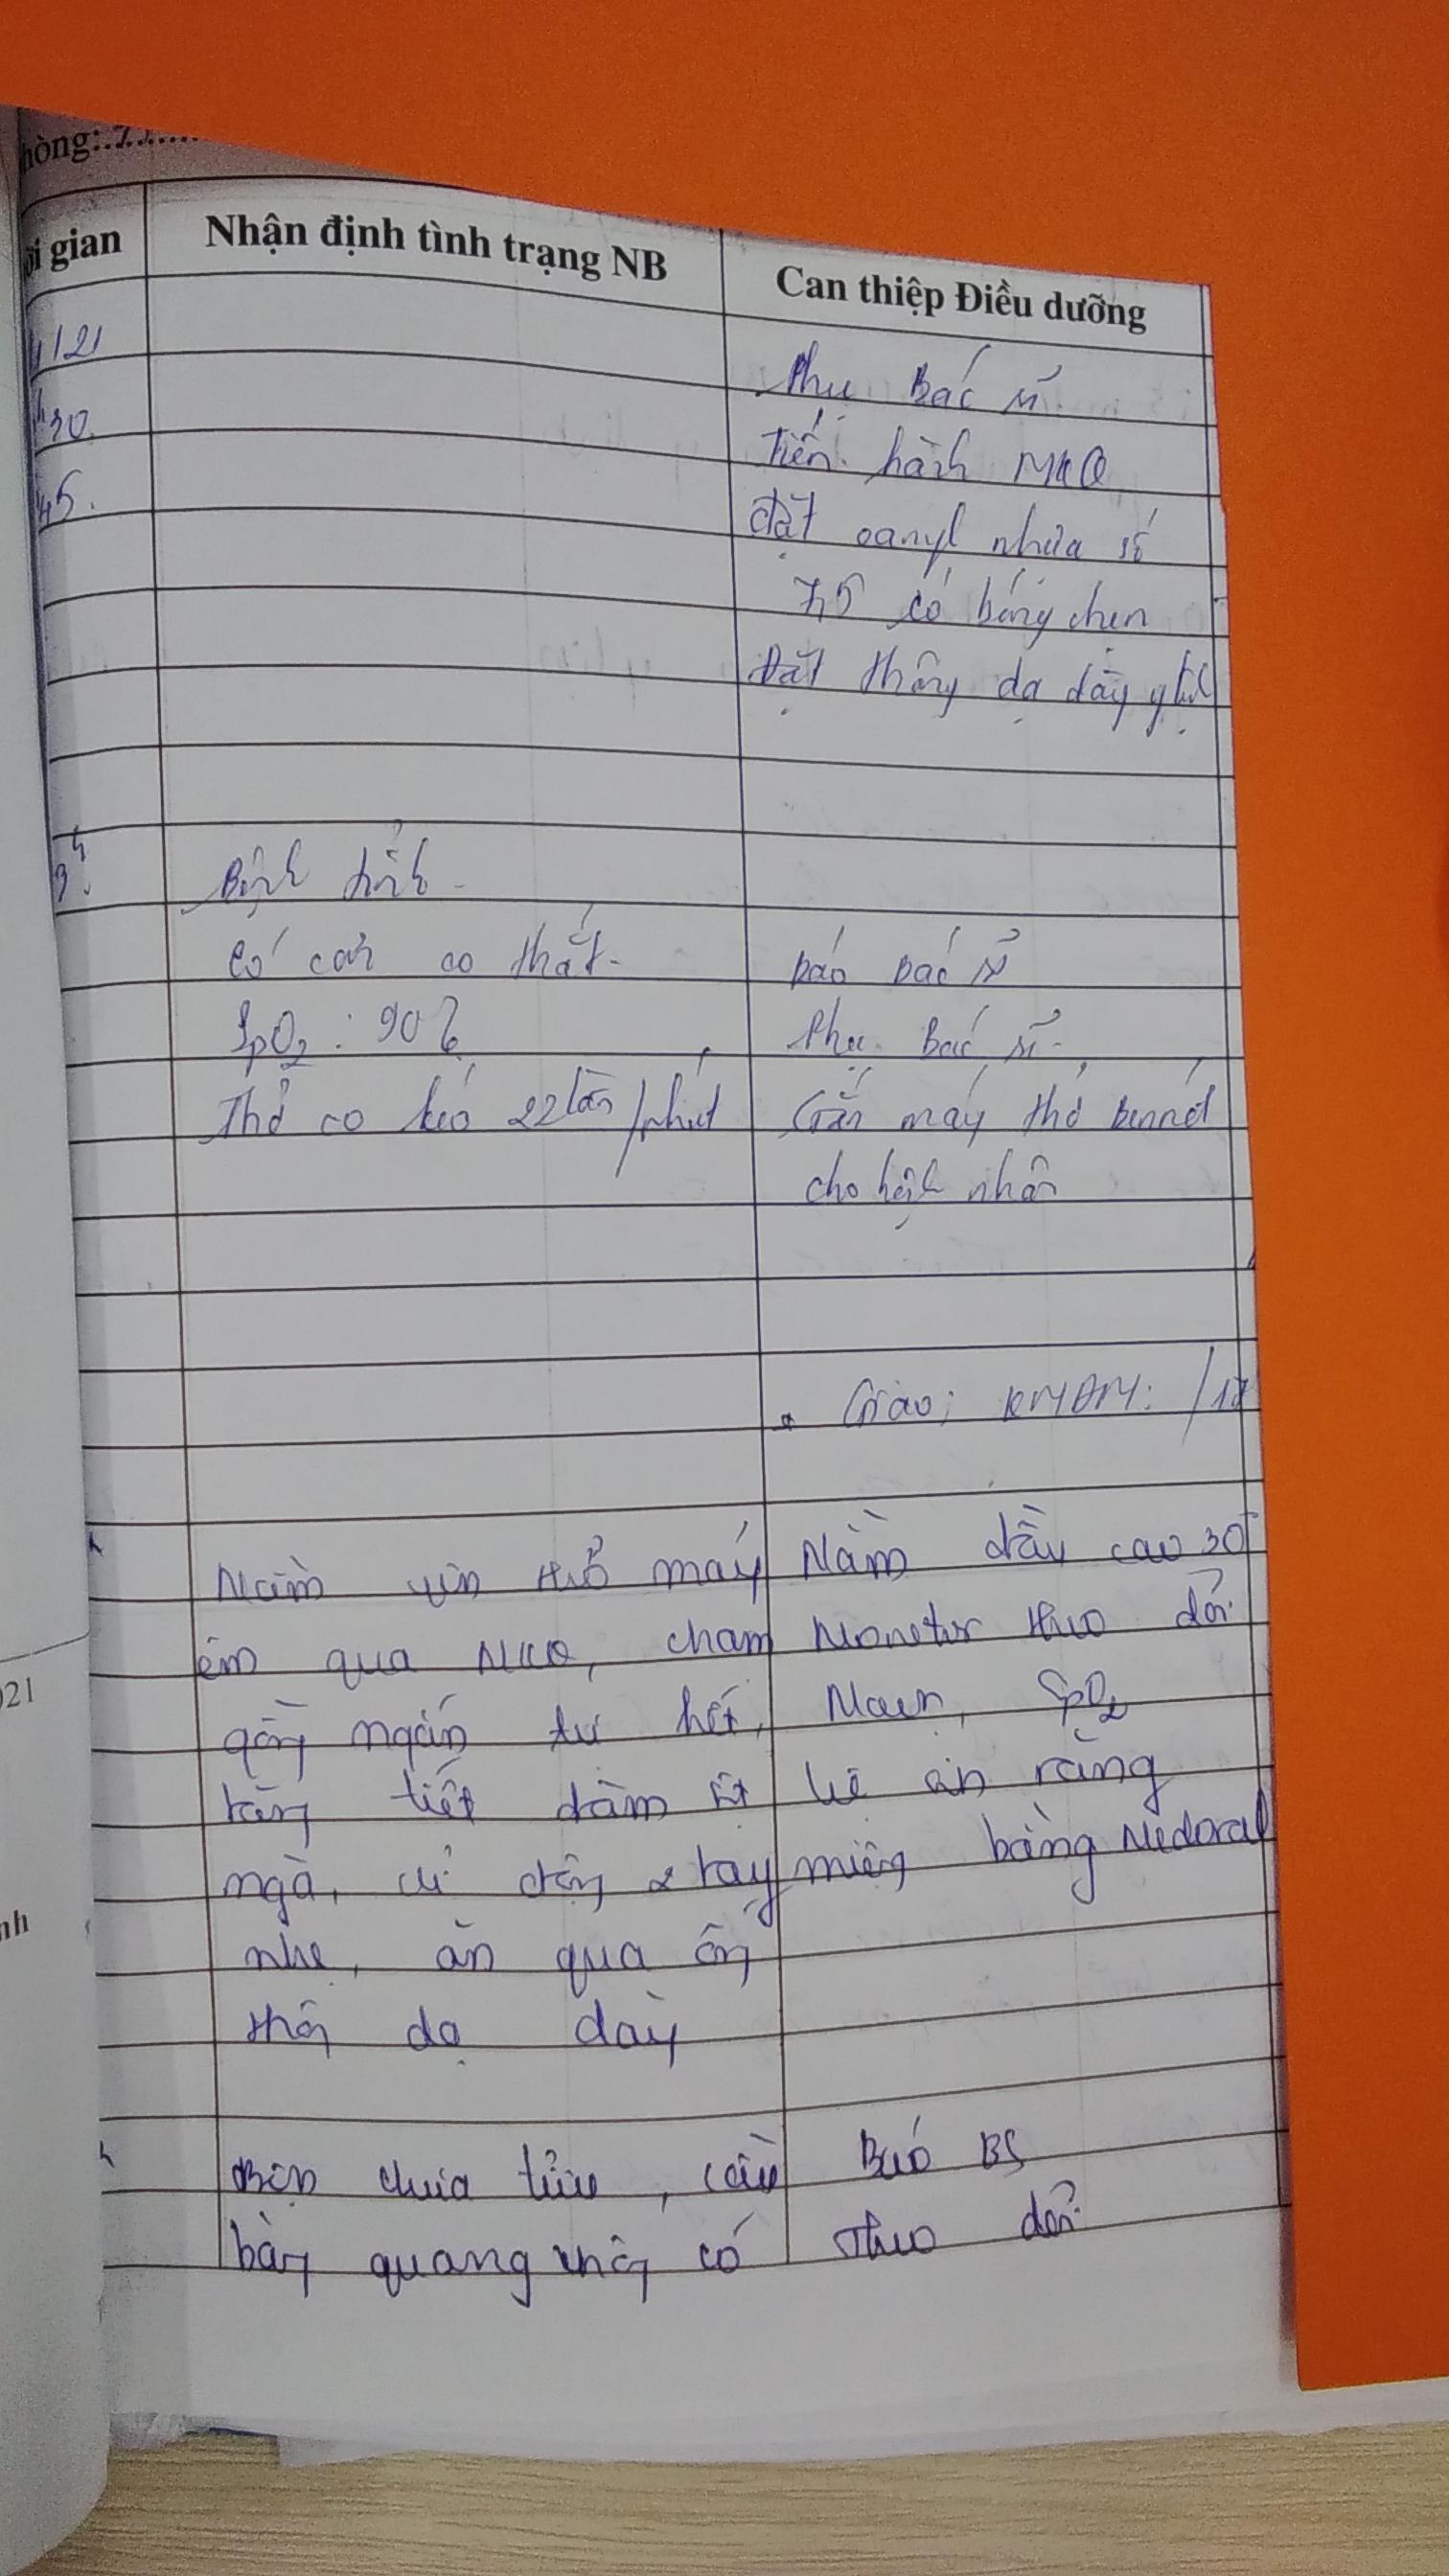 hòng:.7.......
ời gian
Nhận định tình trạng NB
Can thiệp Điều dưỡng
/21
Phụ Bác sĩ
h30.
Tiến hành MKQ
45.
đặt canyl nhựa số
7,5 có bóng chèn
Đặt thông dạ dày
9h
Bệnh tỉnh
có cơn co thắt.
báo bác sĩ
SpO2 : 90%
Phụ Bác sĩ.
Thở co kéo 22 lần/phút
Gắn máy thở bennet
cho bệnh nhân
Giao:
Nằm yên thở máy
Nằm đầu cao 30°
êm qua MKQ, chậm
Monetor theo dõi
gọng ngón tư hết,
Mạch, SpO2
tăng tiết đàm ít
Vê sin răng
ngà, cử động 2 tay
miệng bằng Medoral
nhẹ, ăn qua ống
thông dạ dày
021
Bện chưa tiểu, cầu
Báo BS
bàng quang không có
Theo dõi
nh